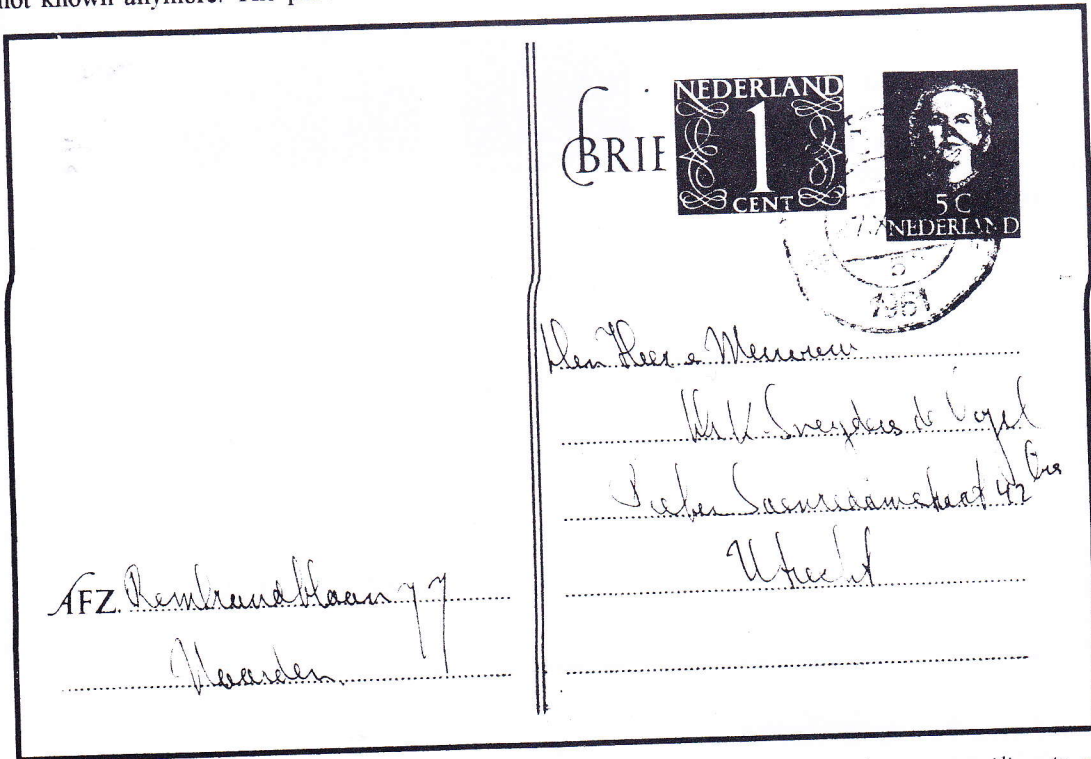 not known anymore.
BRIE
NEDERLAND
1
CENT
5 C
NEDERLAND
1961
Den Heer e Mevrouw
K. Sneyders de Vogel
Pieter Saenredamstraat 42 bis
Utrecht
AFZ. Rembrandtlaan 77
Naarden.